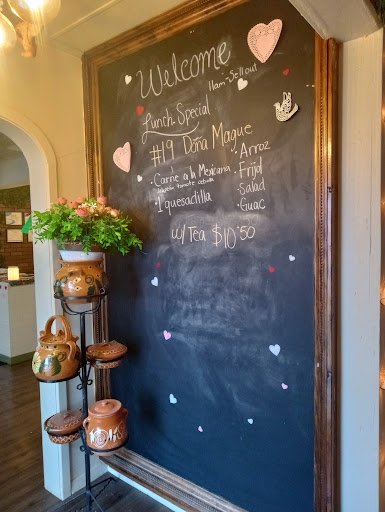 Welcome
11am-Sellout
Lunch Special
#19 Doña Maque
• Carne a la Mexicana
Jalapeño tomate cebolla
• 1 quesadilla
• Arroz
• Frijol
• Salad
• Guac
w/ Tea $10.50